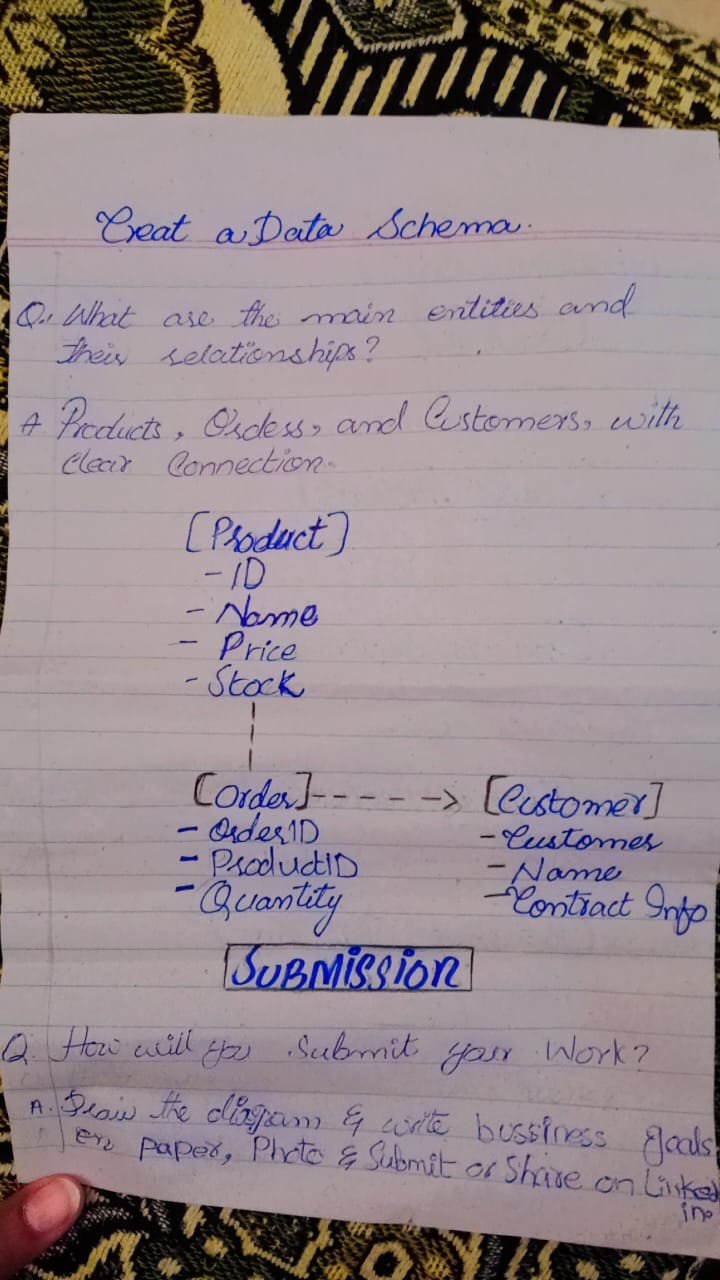 Creat a Data Schema.
Q. What are the main entities and
their relationships?
A Products, Orders, and Customers, with
clear Connection.
[Product]
- ID
- Name
- Price
- Stock
[Order]- - - - -> [Customer]
- OrderID - Customer
- ProductID - Name
- Quantity - Contract Info
SUBMISSION
Q. How will you Submit your Work?
A. Draw the diagram & write bussiness goals
on paper, Photo & Submit or Share on Linked
in.